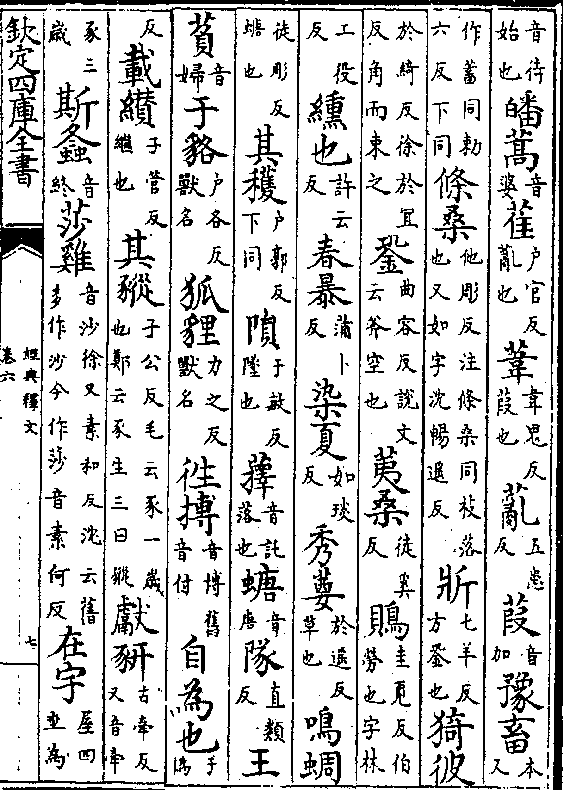 音待始也皤蒿音婆萑戶官反薍也葦韋鬼反葭也薍五患反葭音加豫畜本又
作蓄同勑六反下同條桑他彫反注條桑同枝落也又如字沈暢遥反斨七羊反方銎也猗彼
於綺反徐於宜反角而束之銎曲容反說文云斧空也荑桑徒奚反鵙圭覓反伯勞也字林
工役反纁也許云反春暴蒲卜反染夏如琰反秀葽於遥反草也鳴蜩
徒彫反螗也其穫戶郭反下同隕于敏反墜也蘀音託落也螗音唐隊直類反王
萯音婦于貉戶各反獸名狐貍力之反獸名往搏音博舊音付自為也于偽
反載纘子管反繼也其豵子公反毛云豕一歲也鄭云豕生三曰豵獻豜古牽反又音牽
豕三歲斯螽音終莎雞音沙徐又素和反沈云舊多作沙今作莎音素何反在宇屋四垂為
欽定四庫全書
經典釋文
卷六
七